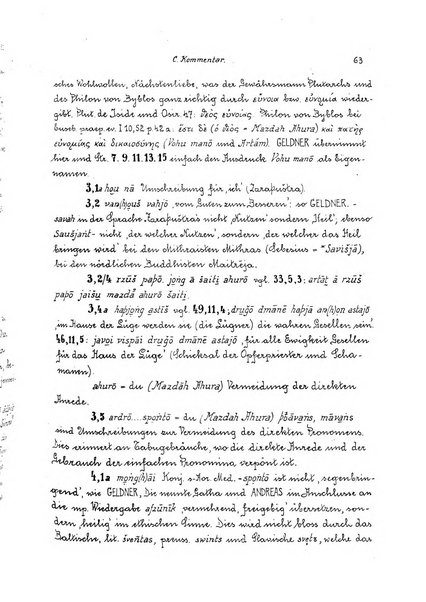 C. Kommentar. 63
sches Wohlwollen, Nächstenliebe, was der Gewährsmann Plutarchs und
des Philon von Byblos ganz richtig durch εὔνοια bzw. εὐνομία wieder-
gibt, Plut. de Iside und Osir. 47: θεὸς εὐνοίας. Philon von Byblos bei
Euseb. praep. ev. I 10, 52 p. 42 a: ἔστι δὲ (ὁ θεὸς = Mazdah Ahura) καὶ πατὴρ
εὐνομίας καὶ δικαιοσύνης (Vohu manō und Artam). GELDNER übernimmt
hier und Str. 7. 9. 11. 13. 15 einfach den Ausdruck Vohu manō als Eigen-
namen.
3,1a hou nā Umschreibung für ‚ich' (Zaraþuštra).
3,2 vahjō ‚vom Guten zum Besseren': so GELDNER.
-savah in der Sprache Zaraþuštras nicht ‚Nutzen' sondern ‚Heil'; ebenso
nicht ‚der welcher Nutzen', sondern ‚der welcher das Heil
bringen wird' bei den Mithraisten Mithras (Sebesius = Savišjā),
bei den nördlichen Buddhisten Maitrēja.
3,2/4 rzūš paþō jong ā šaiti ahurō vgl. 33,5,3: artāt ā rzūš
paþō jaišu mazdā ahurō šaiti.
3,4a vgl. 49,11,4: drugō dmānē astajō
‚im Hause der Lüge werden sie (die Lügner) die wahren Gesellen sein'
46,11,5: javoi vispāi drugō dmānē astajō ‚für alle Ewigkeit Gesellen
für das Haus der Lüge' (Schicksal der Opferpriester und Scha-
manen).
ahurō = du (Mazdāh Ahura) Vermeidung der direkten
Anrede.
3,5 ardrō.... spontō = du (Mazdah Ahura) þbāvans, māvans
sind Umschreibungen zur Vermeidung des direkten Pronomens.
Dies erinnert an Tabugebräuche, wo die direkte Anrede und der
Gebrauch der einfachen Pronomina verpönt ist.
4,1a Konj. s-Aor. Med. -spontō ist nicht ‚segenbrin-
gend', wie GELDNER, Die neunte Gatha und ANDREAS im Anschlusse an
die mp. Wiedergabe afzūnīk vermehrend, freigebig' übersetzen, son-
dern ‚heilig' im ethischen Sinne. Dies wird nicht bloss durch das
Baltische, lit. šventas, preuss. swints und Slavische svętz, welche das